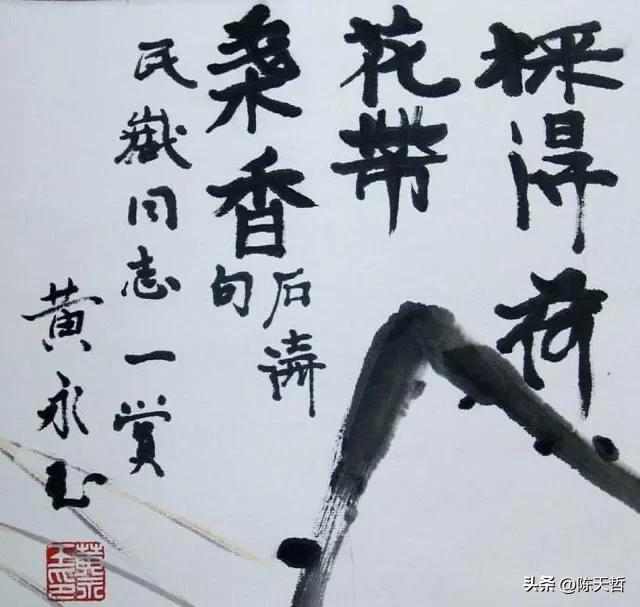 採得荷
花帶
桑香
石濤
句
民同志一賞
黄永玉
黄永玉印
头条 @陈天哲